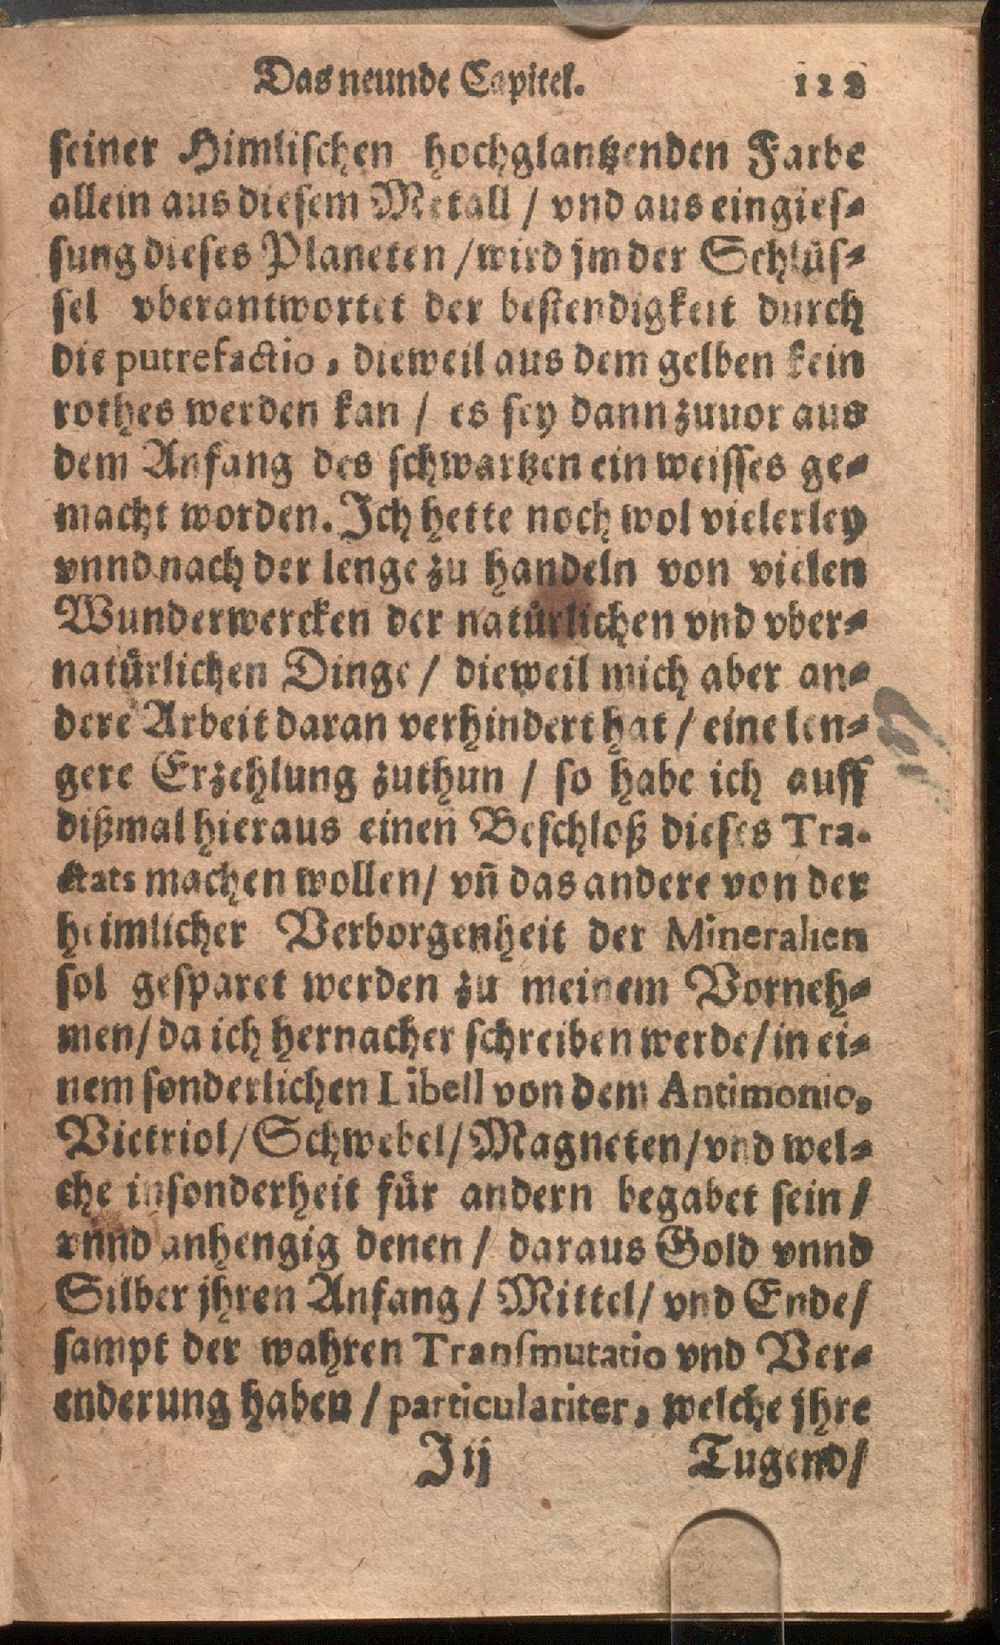 Das neunde Capitel. 128
seiner Himlischen hochglantzenden Farbe
allein aus diesem Metall / vnd aus eingies-
sung dieses Planeten / wird jm der Schlüs-
sel vberantwortet der bestendigkeit durch
die putrefactio, dieweil aus dem gelben kein
rothes werden kan / es sey dann zuuor aus
dem Anfang des schwartzen ein weisses ge-
macht worden. Ich hette noch wol vielerley
vnnd nach der lenge zu handeln von vielen
Wunderwercken der natürlichen vnd vber-
natürlichen Dinge / dieweil mich aber an-
dere Arbeit daran verhindert hat / eine len-
gere Erzehlung zuthun / so habe ich auff
dißmal hieraus einen Beschloß dieses Tra-
ctats machen wollen / vñ das andere von der
heimlicher Verborgenheit der Mineralien
sol gesparet werden zu meinem Vorneh-
men / da ich hernacher schreiben werde / in ei-
nem sonderlichen Libell von dem Antimonio,
Vietriol / Schwebel / Magneten / vnd wel-
che insonderheit für andern begabet sein /
vnnd anhengig denen / daraus Gold vnnd
Silber jhren Anfang / Mittel / vnd Ende /
sampt der wahren Transmutatio vnd Ver-
enderung haben / particulariter, welche jhre
J ij Tugend /